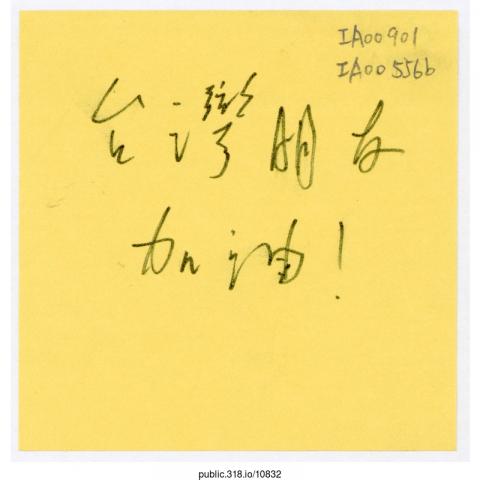 IA00901
IA00556b
台灣朋友
加油!
public.318.io/10832